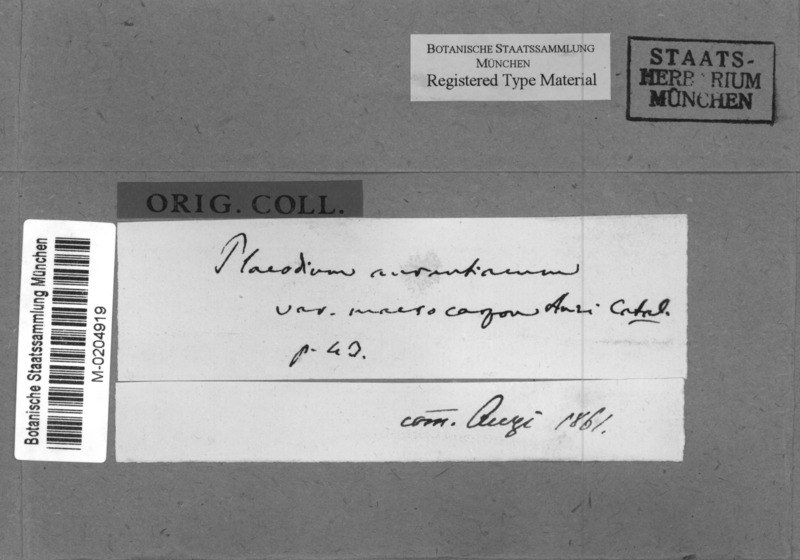 BOTANISCHE STAATSSAMMLUNG
MÜNCHEN
Registered Type Material
STAATS-
HERBARIUM
MÜNCHEN
ORIG. COLL.
Botanische Staatssammlung München
M-0204919
Placodium aurantiacum
var. macrocarpon Anzi Catal.
p. 43.
com̅. Anzi 1861.